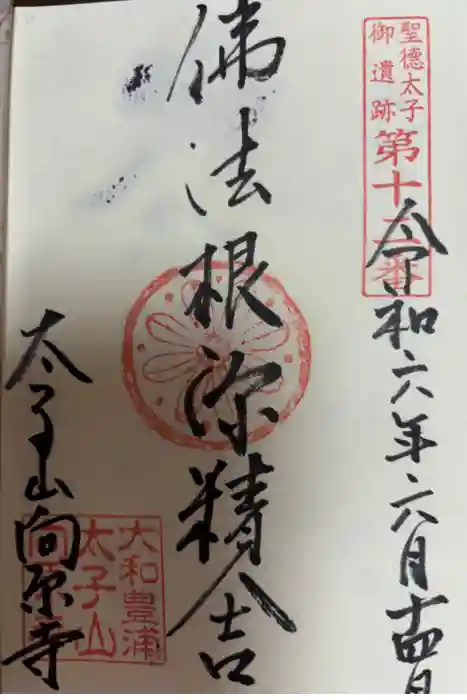 聖德太子
御遺跡
第十二番
令和六年六月十四日
佛法根源精舍
太子山向原寺
大和豊浦
太子山